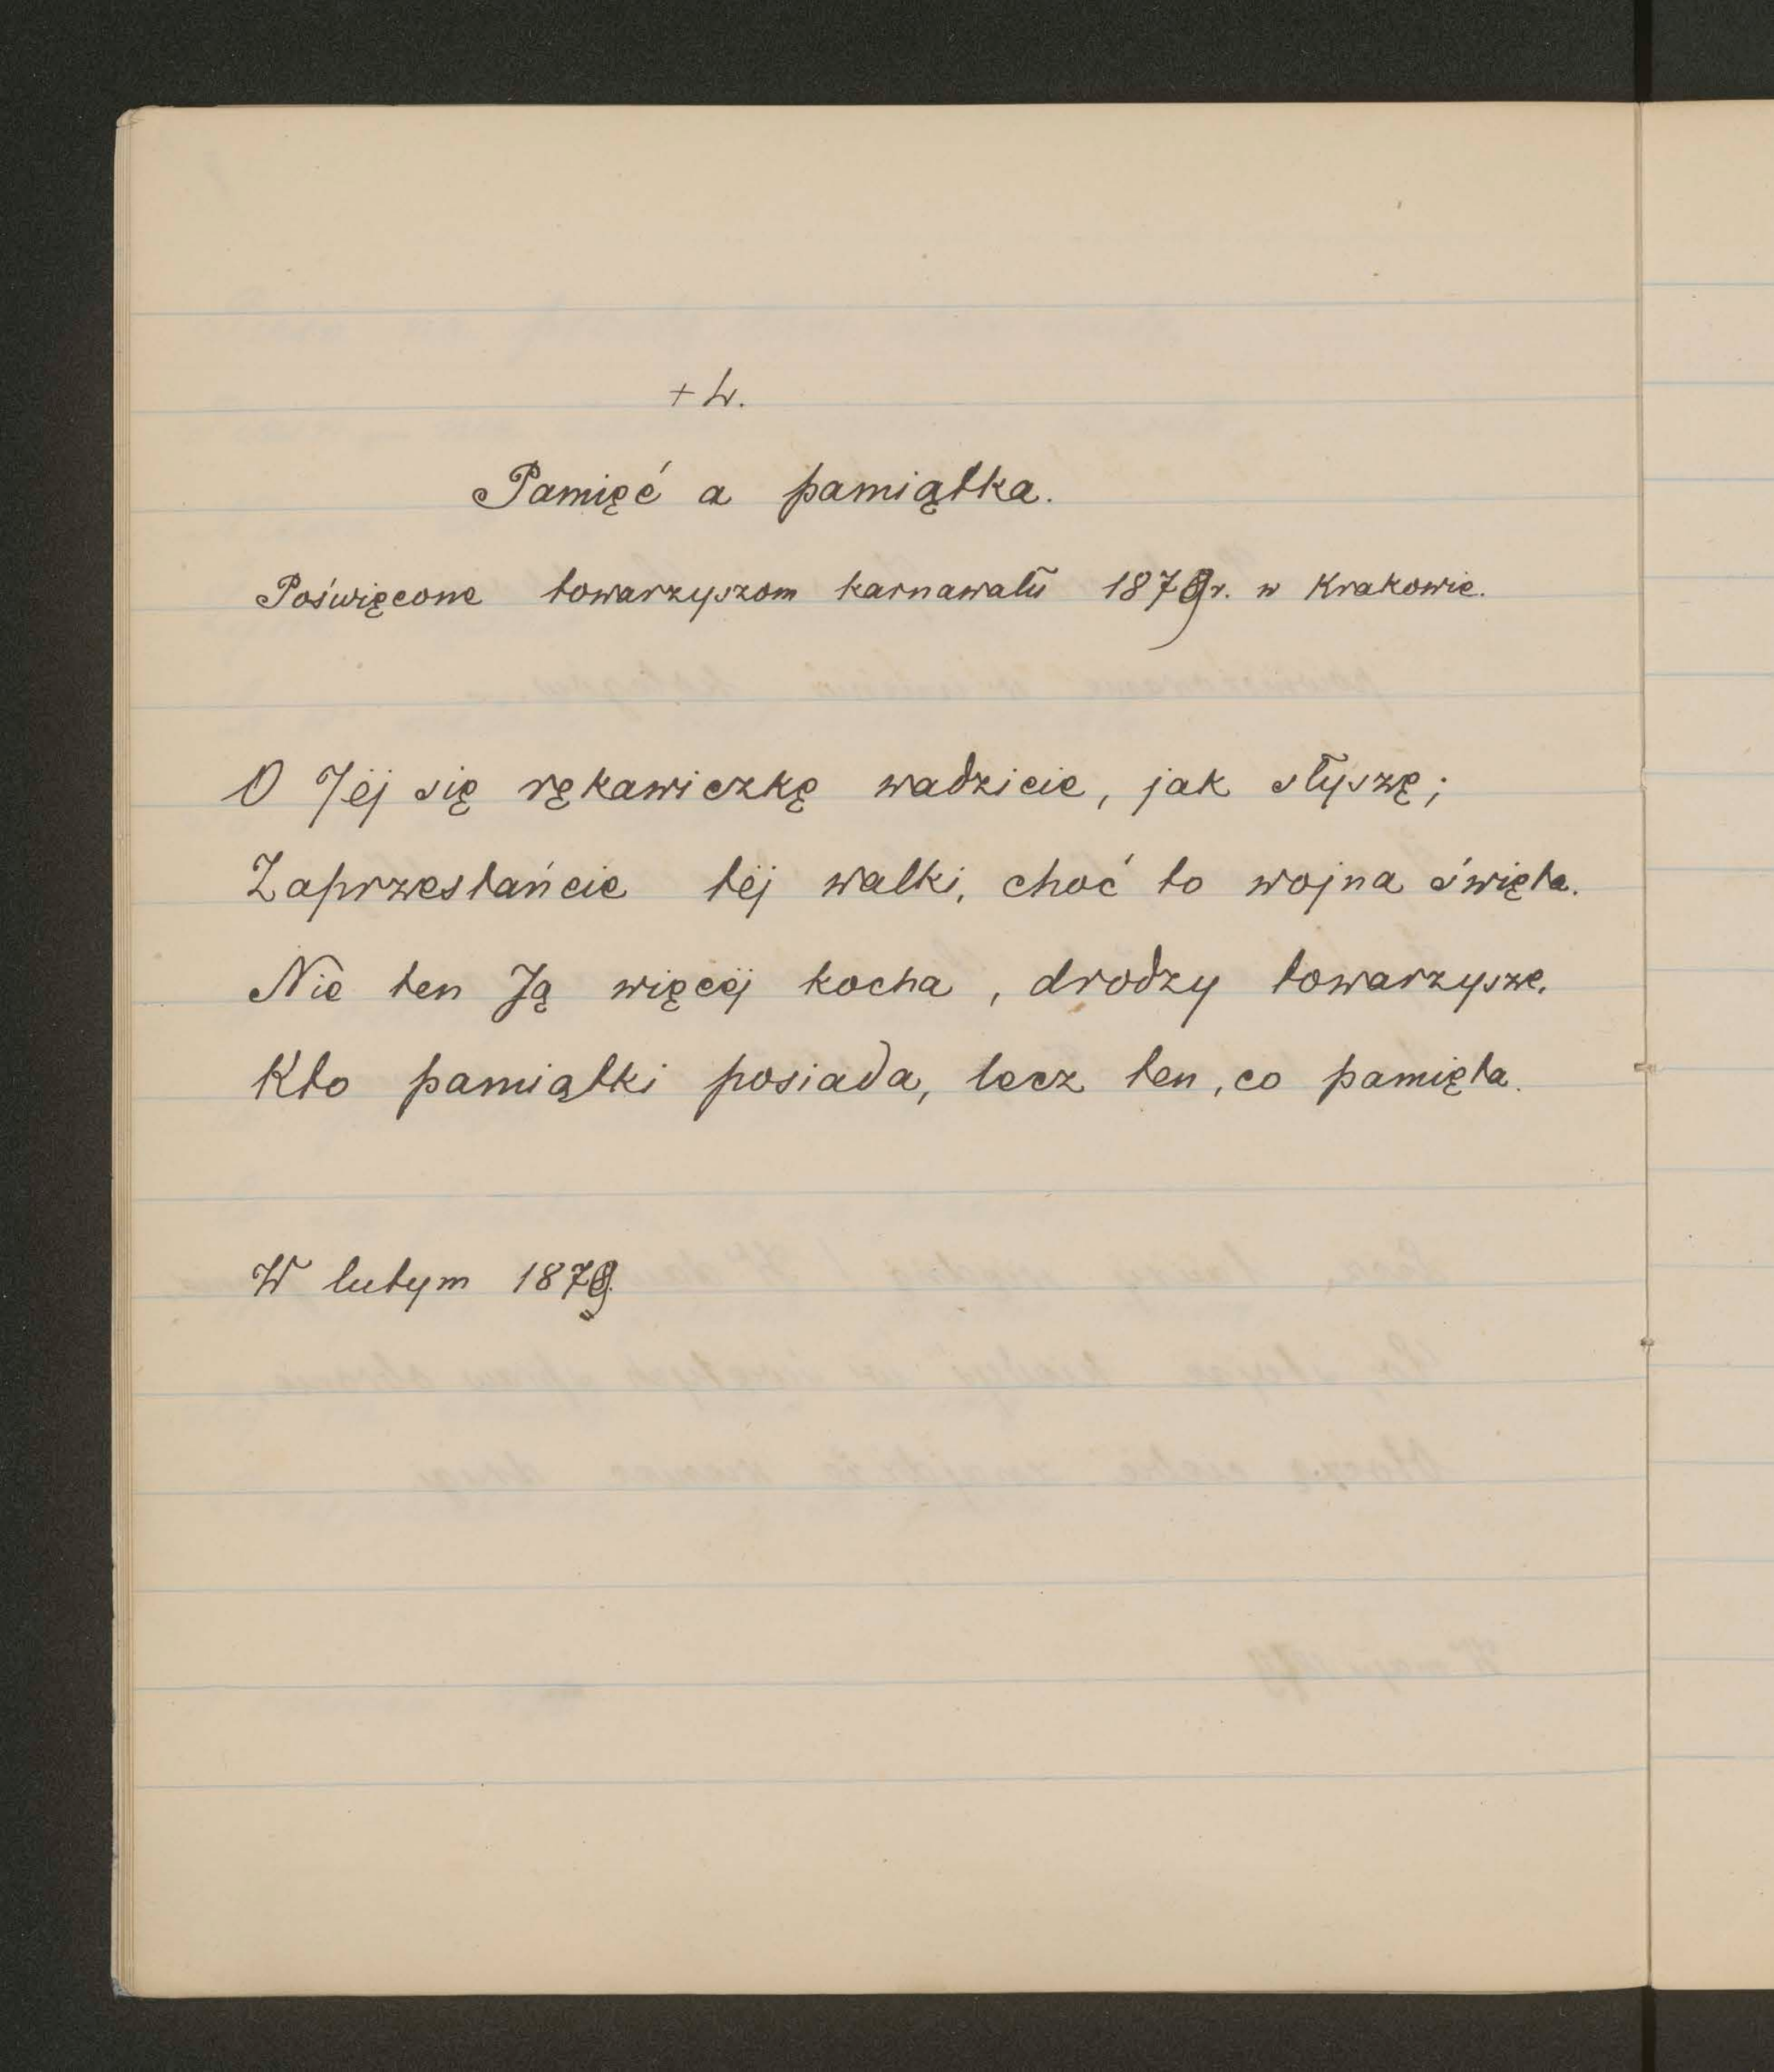 + L.
Pamięć a pamiątka.
Poświęcone towarzyszom karnawału 1879 r. w Krakowie.
O Jéj się rękawiczkę wadzicie, jak słyszę;
Zaprzestańcie téj walki, choć to wojna święta.
Nie ten Ją więcéj kocha, drodzy towarzysze,
Kto pamiątki posiada, lecz ten, co pamięta.
W lutym 1879.